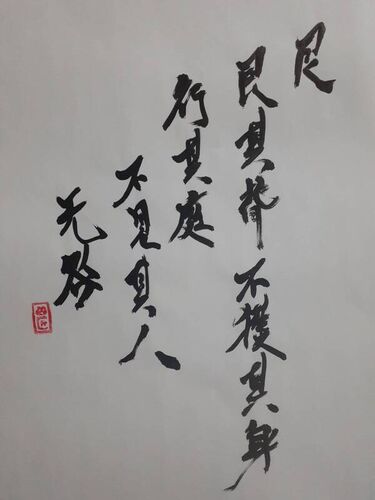 艮
艮其背 不獲其身
行其庭
不見其人
无咎